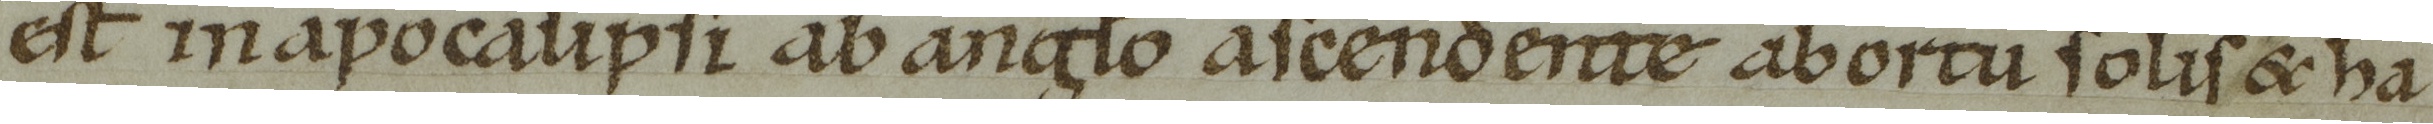 est in apocalipsi ab anglo ascendente ab ortu solis & ha